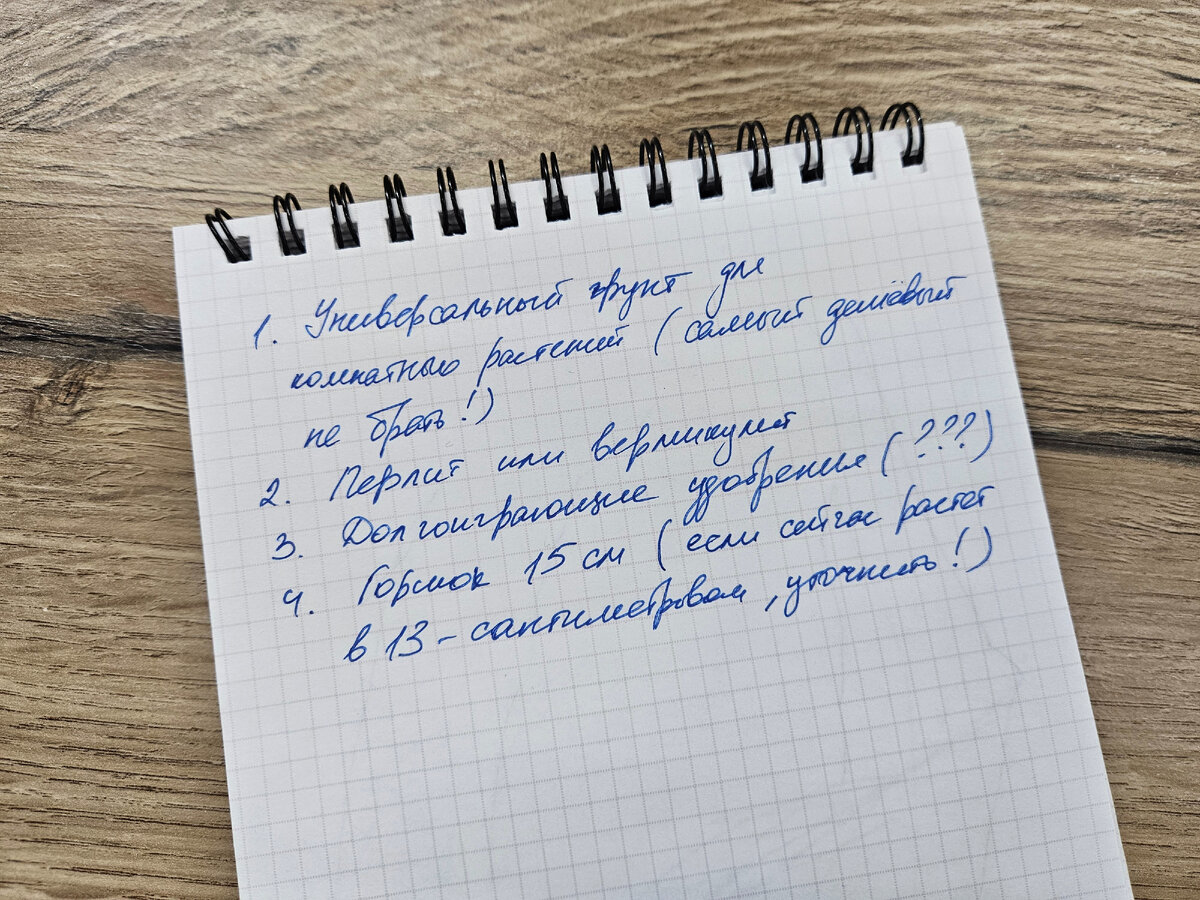 1. Универсальный грунт для
комнатных растений (самый дешёвый
не брать!)
2. Перлит или вермикулит
3. Долгоиграющие удобрения (???)
4. Горшок 15 см (если сейчас растет
в 13-сантиметровом, уточнить!)